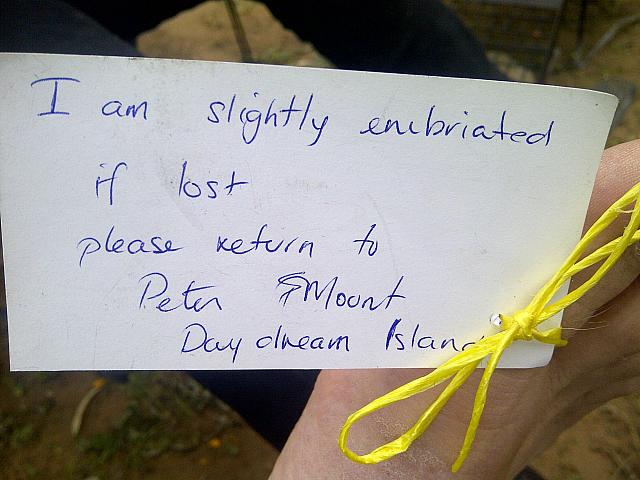 I am slightly enibriated
if lost
please return to
Peter Mount
Daydream Island